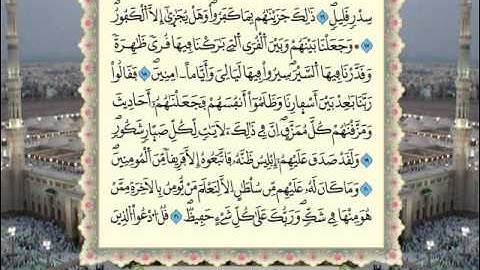 سِدْرٖ قَلِيلٖۖ ۝١٦ ذَٰلِكَ جَزَيْنَٰهُم بِمَا كَفَرُواْۖ وَهَلْ يُجَٰزَىٰٓ إِلَّا اَ۬لْكَفُورُۖ
۝١٧ وَجَعَلْنَا بَيْنَهُمْ وَبَيْنَ اَ۬لْقُرَى اَ۬لتِے بَٰرَكْنَا فِيهَا قُريٗ ظَٰهِرَةٗ
وَقَدَّرْنَا فِيهَا اَ۬لسَّيْرَۖ سِيرُواْ فِيهَا لَيَالِيَ وَأَيَّاماً اٰمِنِينَۖ ۝١٨ فَقَالُواْ
رَبَّنَا بَٰعِدْ بَيْنَ أَسْفَارِنَا وَظَلَمُوٓاْ أَنفُسَهُمْ فَجَعَلْنَٰهُمُۥٓ أَحَادِيثَ
وَمَزَّقْنَٰهُمْ كُلَّ مُمَزَّقٍۖ اِنَّ فِے ذَٰلِكَ لَأٓيَٰتٖ لِّكُلِّ صَبّارٖ شَكُورٖۖ
۝١٩ وَلَقَدْ صَدَقَ عَلَيْهِمُۥٓ إِبْلِيسُ ظَنَّهُۥ فَاتَّبَعُوهُ إِلَّا فَرِيقاٗ مِّنَ اَ۬لْمُومِنِينَۖ
۝٢٠ وَمَا كَانَ لَهُۥ عَلَيْهِم مِّن سُلْطَٰنٍ اِلَّا لِنَعْلَمَ مَنْ يُّومِنُ بِالَاخِرَةِ مِمَّنْ
هُوَ مِنْهَا فِے شَكّٖۖ وَرَبُّكَ عَلَىٰ كُلِّ شَےْءٍ حَفِيظٞۖ ۝٢١ قُلُ اُ۟دْعُواْ اُ۬لذِينَ